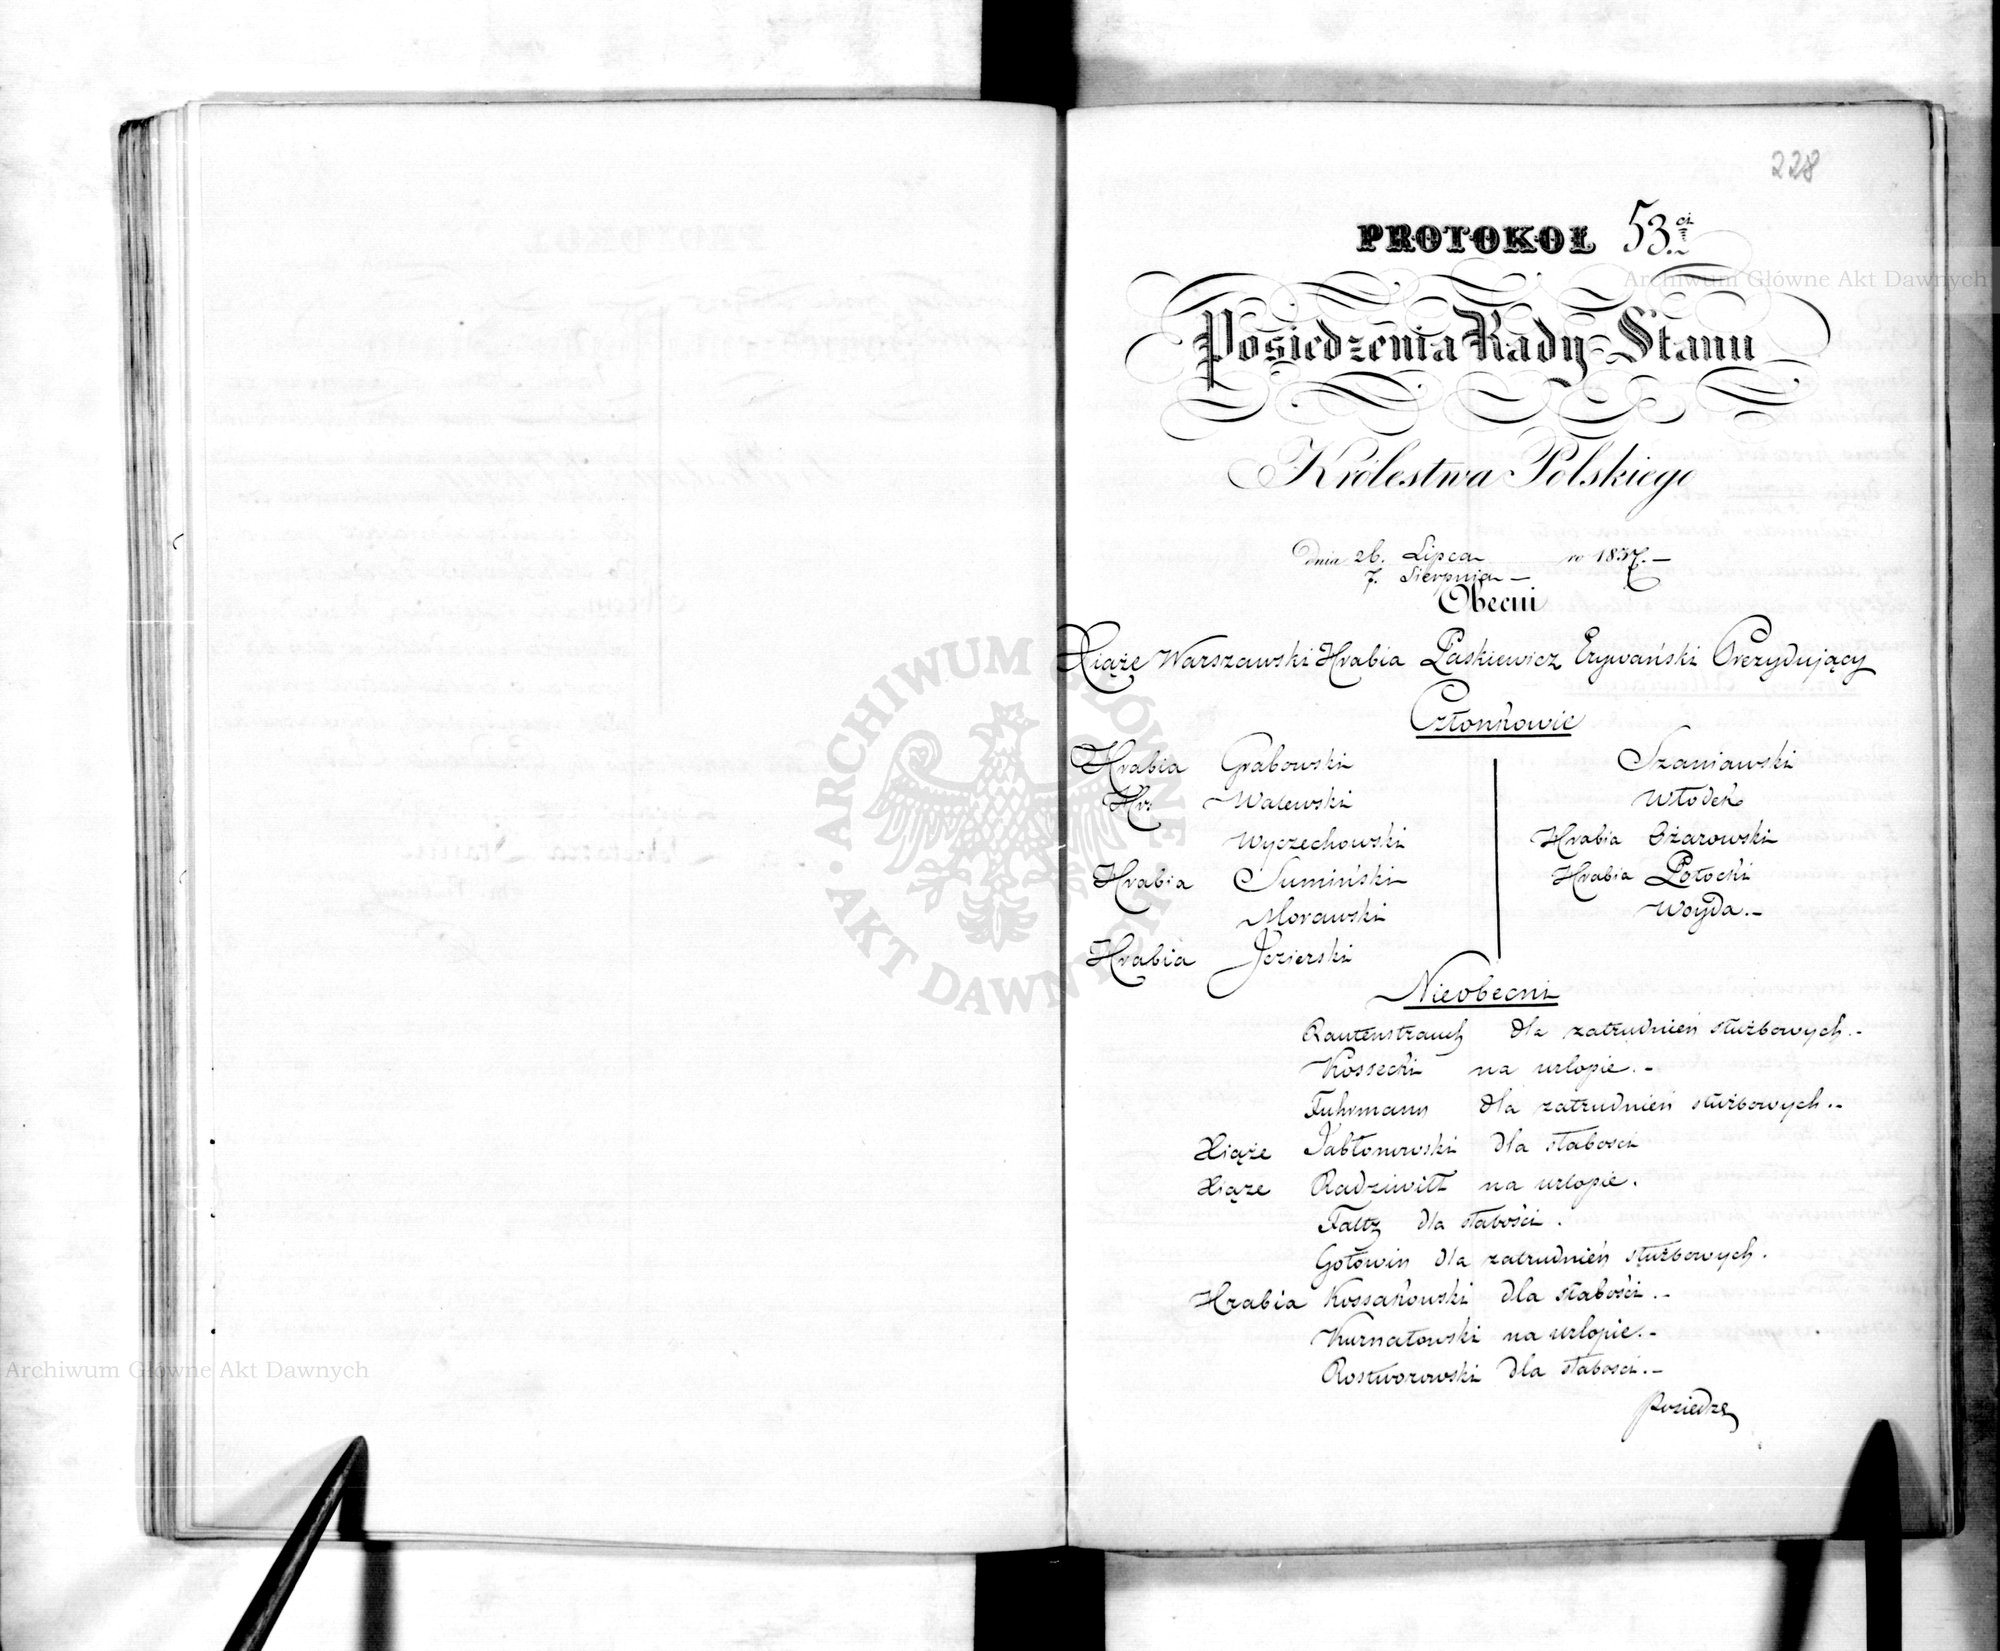 228
PROTOKOŁ 53.ci
Posiedzenia Rady Stanu
Królestwa Polskiego
Dnia 26. Lipca w 1837.–
7. Sierpnia –
Obecni
Xiąże Warszawski Hrabia Paskiewicz Erywański Prezydujący
Członkowie
Hrabia Grabowski
Hr. Walewski
Wyczechowski
Hrabia Sumiński
Morawski
Hrabia Jezierski
Szaniawski
Włodek
Hrabia Ożarowski
Hrabia Potocki
Woyda.–
Nieobecni
Rautenstrauch dla zatrudnień służbowych.–
Kossecki na urlopie.–
Fuhrmann dla zatrudnień służbowych.–
Xiąże Jabłonowski dla słabości
Xiąże Radziwiłł na urlopie.
Faltz dla słabości.
Gołowin dla zatrudnień służbowych.
Hrabia Kossakowski dla słabości.–
Kurnatowski na urlopie.–
Rostworowski dla słabości.–
Posiedze
Archiwum Główne Akt Dawnych
Archiwum Główne Akt Dawnych
ARCHIWUM GŁÓWNE AKT DAWNYCH